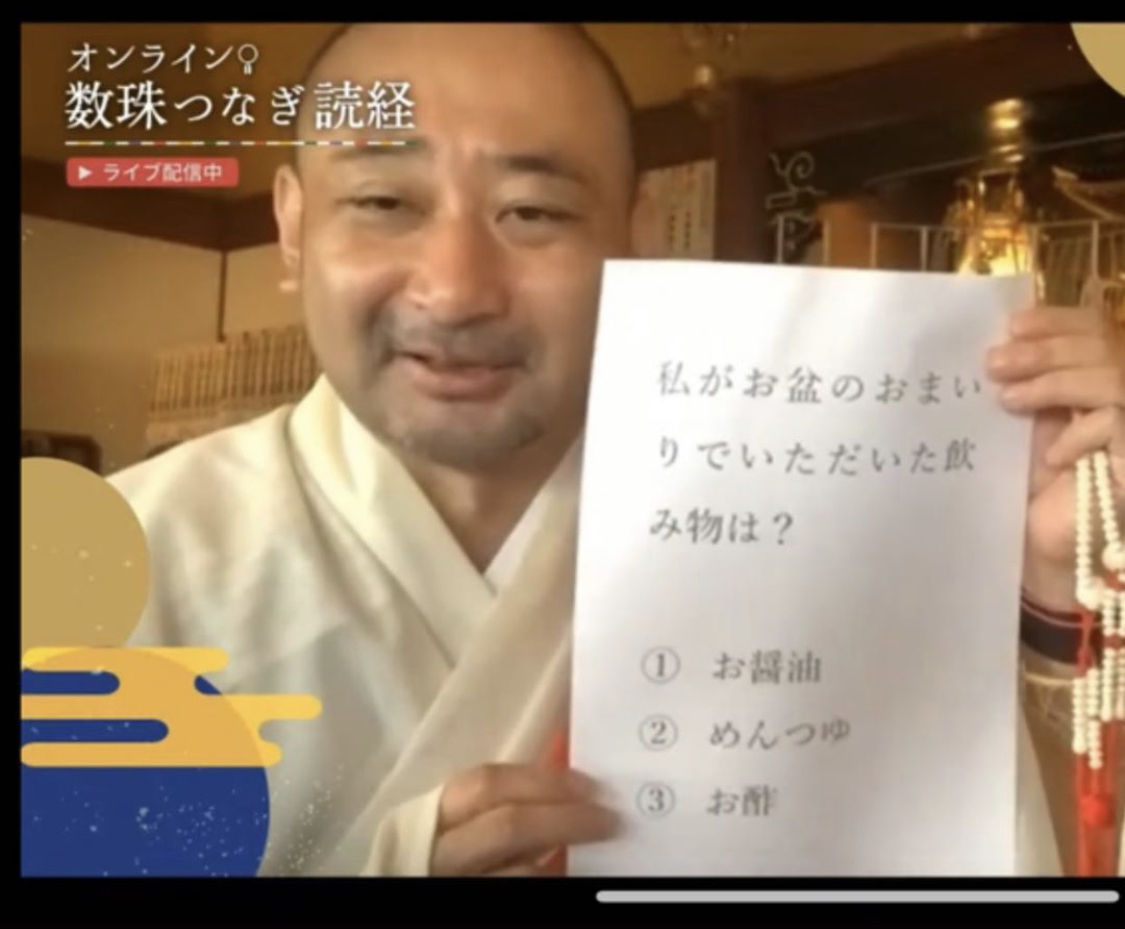 オンライン
数珠つなぎ読経
ライブ配信中
私がお盆のおまい
りでいただいた飲
み物は？
① お醤油
② めんつゆ
③ お酢